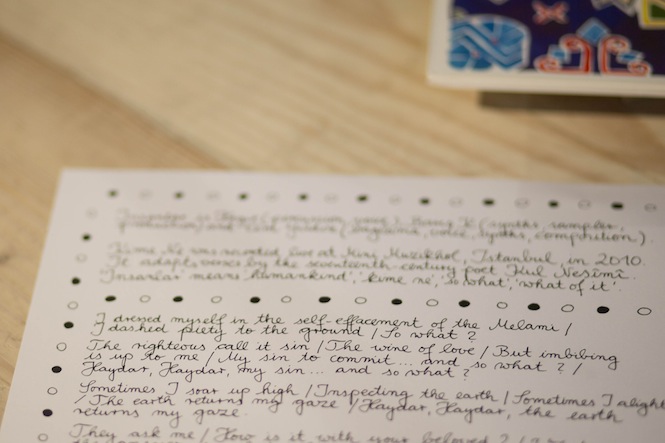 (percussion, voice), Barış K (synths, sampler,
production) and (engineer, voice, synths, composition).
Kime Ne was recorded live at Mini Müzikhol, Istanbul, in 2010.
It adapts verses by the seventeenth-century poet Kul Nesîmî.
'Insanlar' means 'humankind'; 'kime ne', 'so what', 'what of it'.
I dressed myself in the self-effacement of the Melami /
I dashed piety to the ground / So what ?
The righteous call it sin / The wine of love / But imbibing
is up to me / My sin to commit ... and so what ? /
Haydar, Haydar, my sin ... and so what ?
Sometimes I soar up high / Inspecting the earth / Sometimes I alight
/ The earth returns my gaze / Haydar, Haydar, the earth
returns my gaze.
They ask me / How is it with your beloved ? /